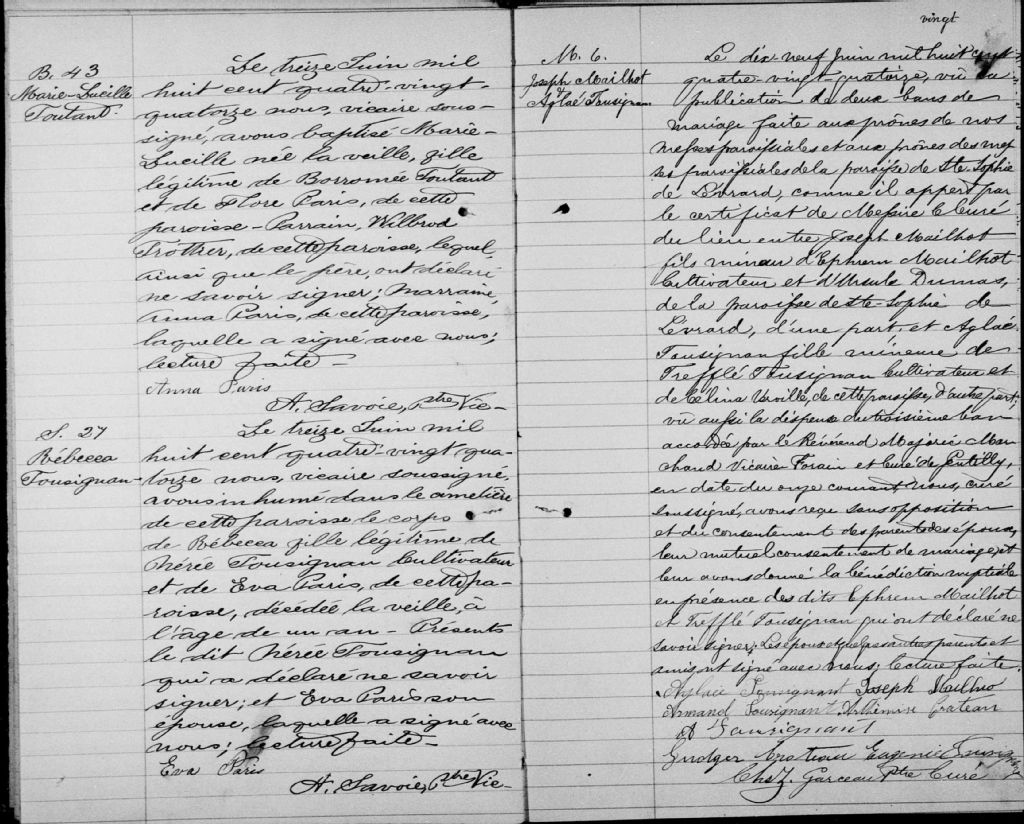 B. 43
Marie-Lucille
Toutant.
Le treize Juin mil
huit cent quatre-vingt-
quatorze nous, vicaire sous-
signé, avons baptisé Marie-
Lucille née la veille, fille
légitime de Borromée Toutant
et de Flore Paris, de cette
paroisse - Parrain, Wilbrod
Trother, de cette paroisse, lequel,
ainsi que le père, ont déclaré
ne savoir signer; Marraine,
Anna Paris, de cette paroisse,
laquelle a signé avec nous;
lecture faite -
Anna Paris
A. Savoie, ptre Vic-
S. 27
Rébecca
Tousignan-
Le treize Juin mil
huit cent quatre-vingt qua-
torze nous, vicaire soussigné,
avons inhumé dans le cimetière
de cette paroisse le corps
de Rébecca fille légitime de
Nérée Tousignan Cultivateur
et de Eva Paris, de cette pa-
roisse, décédée la veille, à
l'âge de un an - Présents
le dit Nérée Tousignan
qui a déclaré ne savoir
signer; et Eva Paris son
épouse, laquelle a signé avec
nous; lecture faite -
Eva Paris
A. Savoie, Ptre Vic-
vingt
M. 6.
Joseph Mailhot
&
Aglaé Tousignan
Le dix neuf Juin mil huit cent
quatre-vingt quatorze, vu la
publication de deux bans de
mariage faite aux prônes de nos
messes paroissiales et aux prônes des mes
ses paroissiales de la paroisse de Ste Sophie
de Lévrard, comme il appert par
le certificat de Messire le Curé
du lieu entre Joseph Mailhot
fils mineur d'Ephrem Mailhot
Cultivateur et d'Ursule Dumas,
de la paroisse de Ste Sophie de
Lévrard, d'une part, et Aglaé
Tousignan fille mineure de
Trefflé Tousignan Cultivateur et
de Célina Verville, de cette paroisse, d'autre part;
vu aussi la dispense du troisième ban
accordée par le Révérend Majoric Mar
chand Vicaire Forain et Curé de Gentilly,
en date du onze courant, Nous, curé
soussigné, avons reçu sans opposition
et du consentement des parents des époux,
leur mutuel consentement de mariage, et
leur avons donné la bénédiction nuptiale
en présence des dits Ephrem Mailhot
& Trefflé Tousignan qui ont déclaré ne
savoir signer; Les époux et quelques autres parents et
amis ont signé avec nous; lecture faite.
Aglaée Tousignant Joseph Mailho
Armand Tousignant Arthémise Croteau
A Tousignant
Eugénie
Chs Z. Garceau Ptre Curé